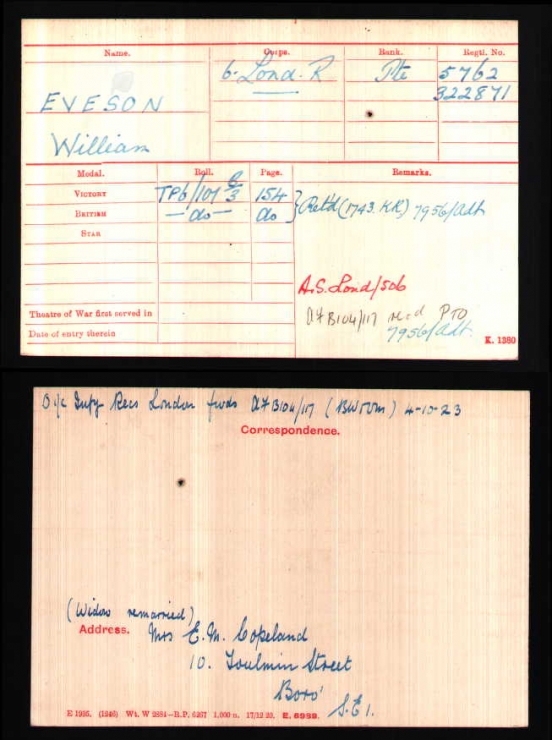 Name. Corps. Rank. Regtl. No.
6. Lond. R Pte 5762
322871
EVESON
William
Medal. Roll. Page. Remarks.
VICTORY TP6/101 C/3 154 } Ret'd (1743. KR) 7956/Adt
BRITISH — do — do
STAR
A.S. Lond/506
AF B104/117 rec'd PTO
7956/Adt.
Theatre of War first served in
Date of entry therein
K. 1380
O i/c Infy Recs London fwds AF B104/117 (BWTVM) 4-10-23
Correspondence.
(Widow remarried)
Address. Mrs E. M. Copeland
10. Toulmin Street
Boro'
S.E.1.
E 1995. (1946) Wt. W 2884—R.P. 6267 1,000 m. 17/12 20. E. 8989.